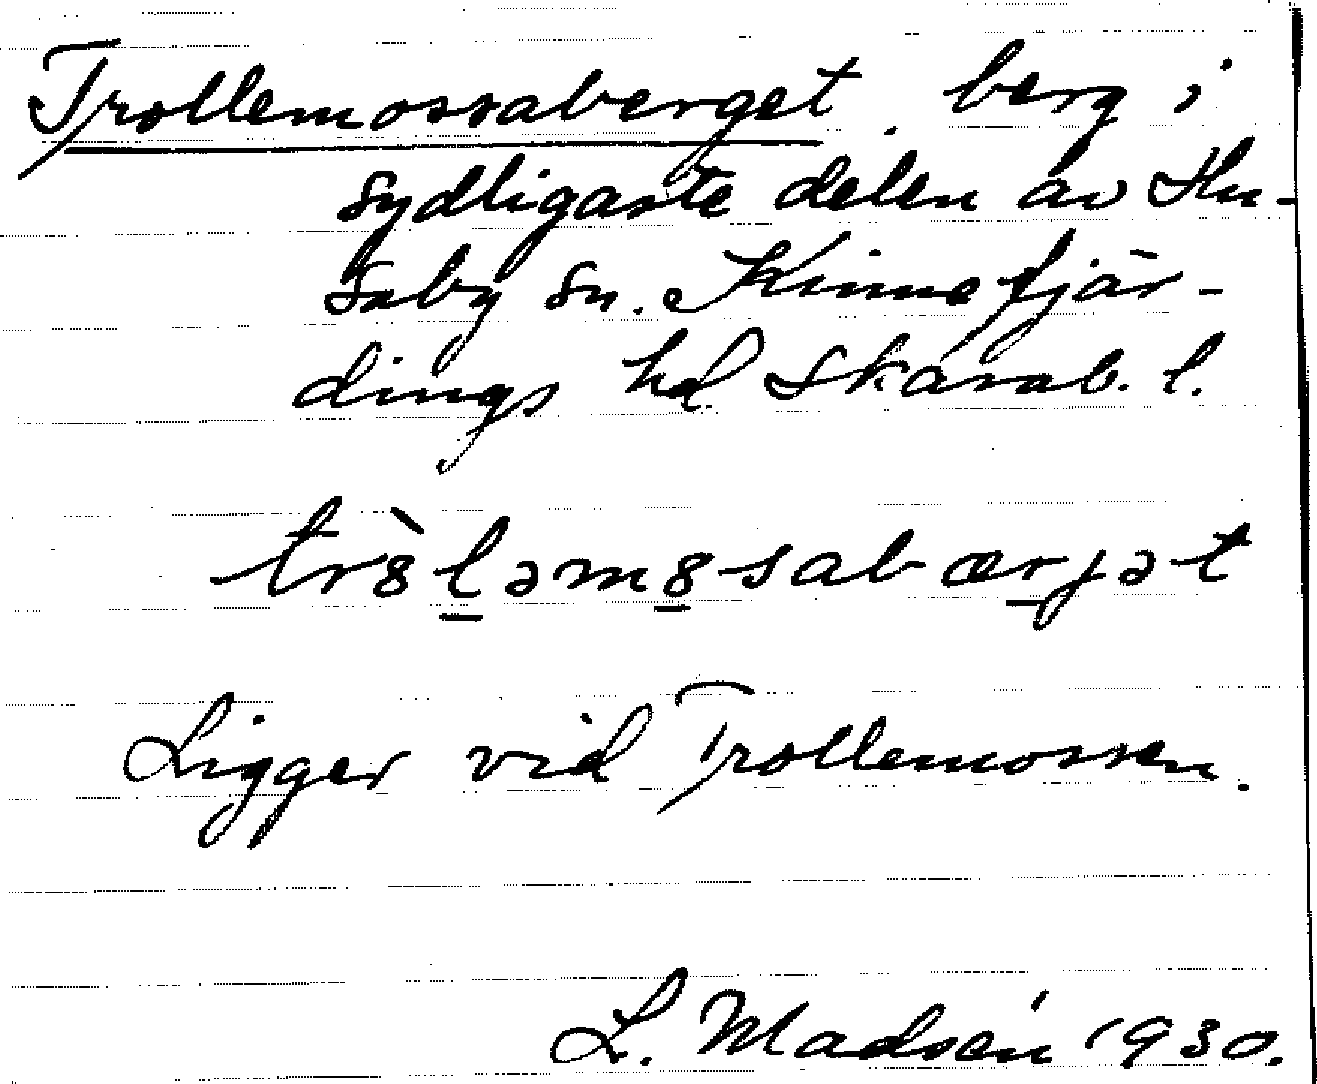 Trollemossaberget, berg i
sydligaste delen av Hu-
saby sn. Kinnefjär-
dings hd Skarab. l.
tr8̀lәm8sabærjәt
Ligger vid Trollemossen.
L. Madsén 1930.